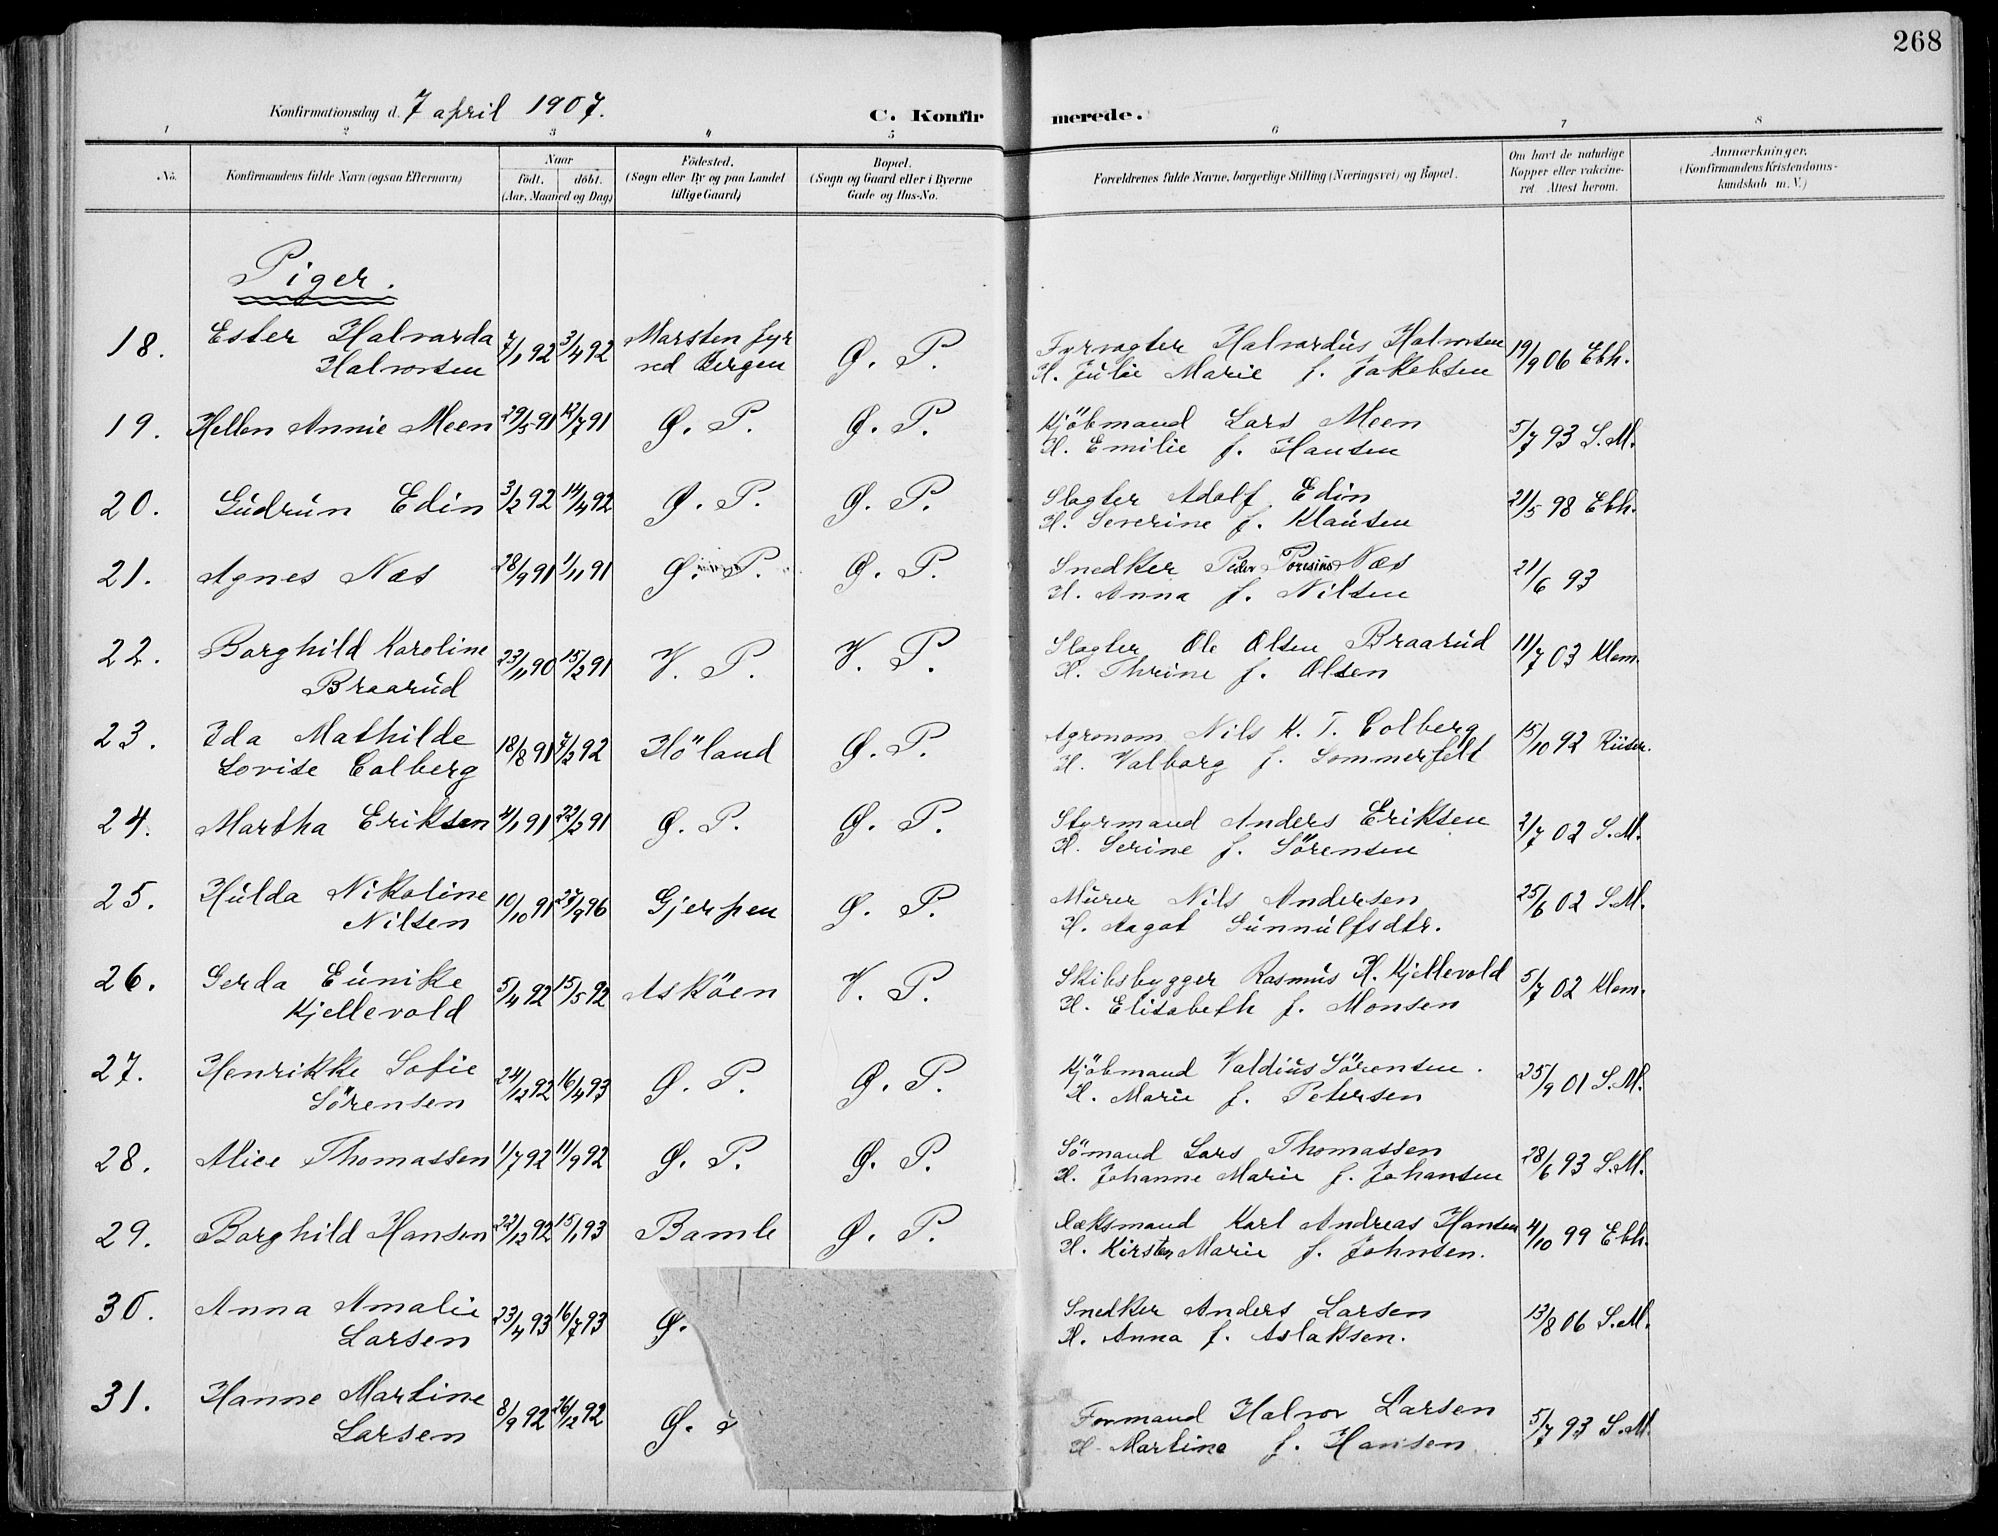 268
Konfirmationsdag d. 7 april 1907.
C. Konfirmerede.
1 2 3 4 5 6 7 8
No.
Konfirmandens fulde Navn (ogsaa Efternavn)
Naar
født. døbt.
(Aar, Maaned og Dag)
Fødested.
(Sogn eller By og paa Landet
tillige Gaard)
Bopæl.
(Sogn og Gaard eller i Byerne
Gade og Hus-No.
Forældrenes fulde Navne, borgerlige Stilling (Næringsvei) og Bopæl.
Om havt de naturlige
Kopper eller vakcine-
ret Attest herom.
Anmærkninger.
(Konfirmandens Kristendoms-
kundskab m. V.)
Piger.
18. Ester Halvarda 7/1 92 3/4 92 Marsten fyr Ø. P. Fyrvogter Halvardus Halvorsen 19/9 06 Ebh.
Halvorsen ved Bergen H. Julie Marie f. Jakobsen
19. Hellen Annie Meen 29/5 91 12/7 91 Ø. P. Ø. P. Kjöbmand Lars Meen 5/7 93 S. M.
H. Emilie f. Hansen
20. Gudrun Edin 3/2 92 14/4 92 Ø. P. Ø. P. Slagter Adolf Edin 21/5 98 Ebh.
H. Severine f. Klausen
21. Agnes Næs 28/9 91 1/11 91 Ø. P. Ø. P. Snedker Peder Næs 21/6 93
H. Anna f. Nilsen
22. Borghild Karoline 23/11 90 15/2 91 V. P. V. P. Slagter Ole Olsen Braarud 11/7 03 Klem.
Braarud H. Thrine f. Olsen
23. Ida Mathilde 18/8 91 7/2 92 Höland Ø. P. Agronom Nils K. T. Colberg 15/10 92
Lovise Colberg H. Valborg f. Sommerfelt
24. Martha Eriksen 4/1 91 22/2 91 Ø. P. Ø. P. Styrmand Anders Eriksen 2/7 02 S. M.
H. Serine f. Sörensen
25. Hulda Nikoline 10/10 91 27/9 96 Gjerpen Ø. P. Murer Nils Andersen 25/6 02 S. M.
Nilsen H. Aagot Gunnulfsdtr.
26. Gerda Eunike 5/4 92 15/5 92 Asköen V. P. Skibsbygger Rasmus H. Kjellevold 5/7 02 Klem.
Kjellevold H. Elisabeth f. Monsen
27. Henrikke Sofie 24/12 92 16/4 93 Ø. P. Ø. P. Kjöbmand Valdius Sörensen. 25/9 01 S. M.
Sörensen H. Marie f. Petersen
28. Alice Thomassen 1/7 92 11/9 92 Ø. P. Ø. P. Sömand Lars Thomassen 28/6 93 S. M.
H. Johanne Marie f. Johansen
29. Borghild Hansen 22/12 92 15/1 93 Bamle Ø. P. Karl Andreas Hansen 4/10 99 Ebh.
H. Kirsten Marie f. Johnsen.
30. Anna Amalie 23/4 93 16/7 93 Ø. Snedker Anders Larsen 13/8 06 S. M.
Larsen H. Anna f. Aslaksen.
31. Hanne Martine 8/9 92 26/12 92 Ø. Formand Halvor Larsen 5/7 93 S. M.
Larsen H. Martine f. Hansen